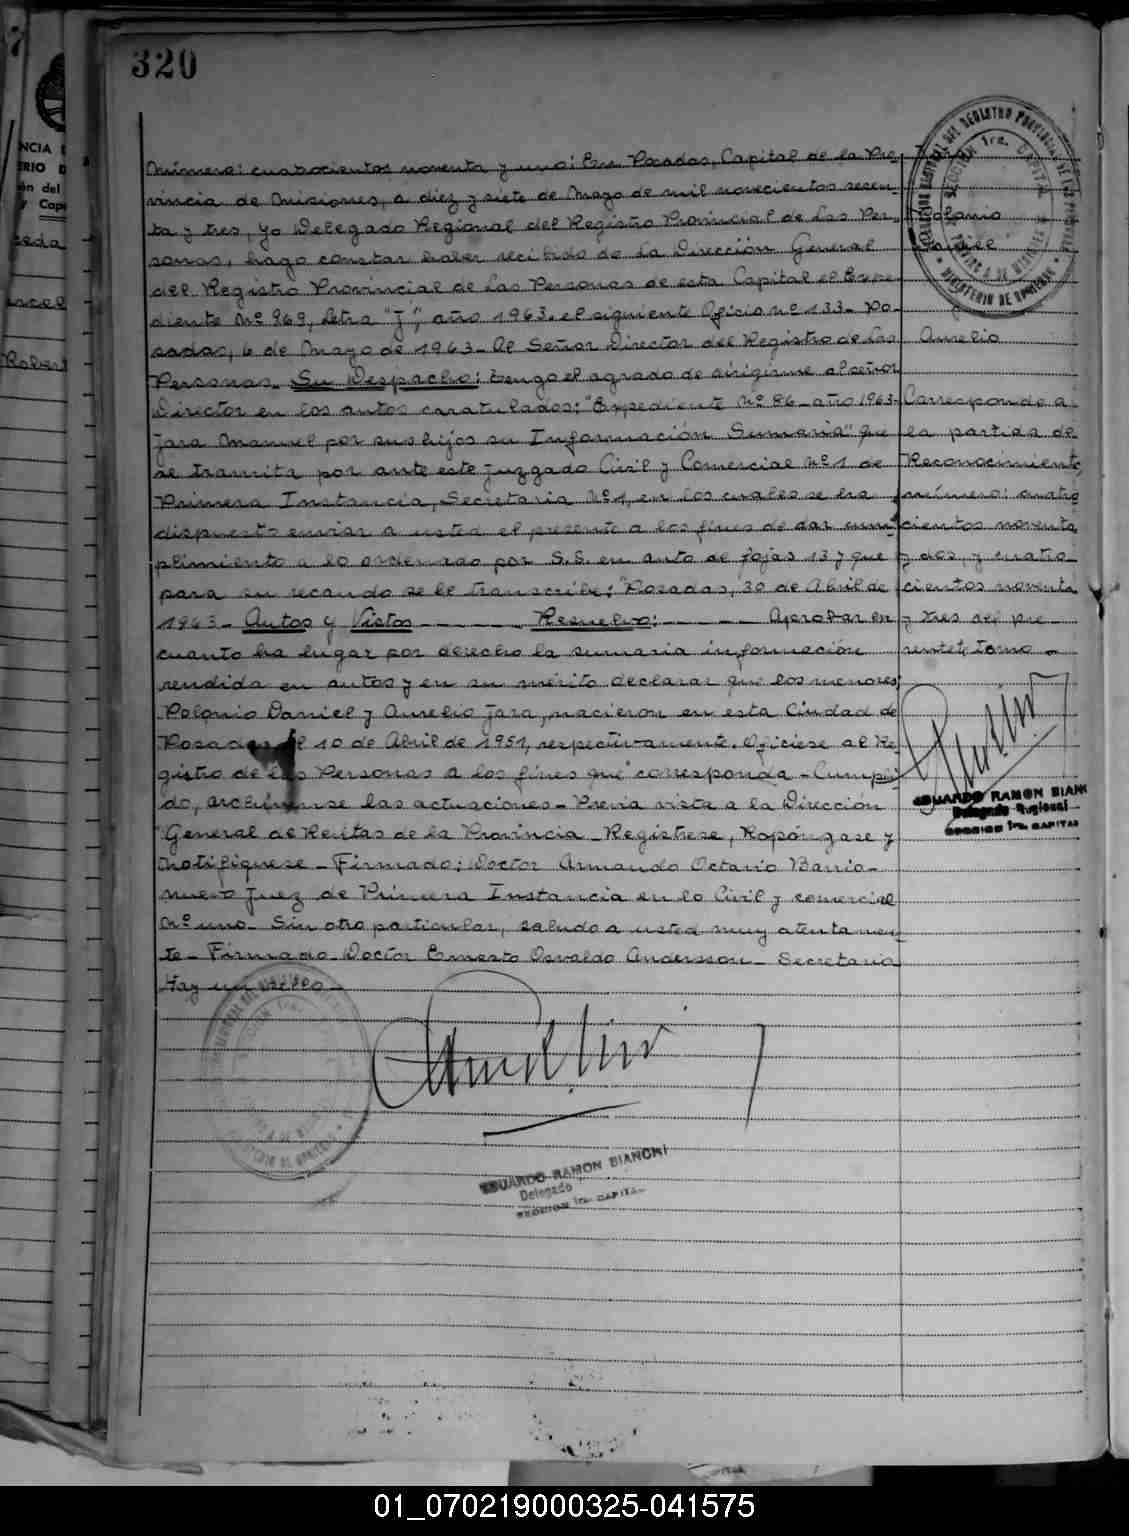 320
Número: cuatrocientos noventa y uno: En Posadas, Capital de la Pro-
vincia de Misiones, a diez y siete de Mayo de mil novecientos sesen-
ta y tres, yo Delegado Regional del Registro Provincial de las Per-
sonas, hago constar haber recibido de la Dirección General
del Registro Provincial de las Personas de esta Capital el Expe-
diente Nº 969, Letra "J", año 1963. el siguiente Oficio nº 133- Po-
sadas, 6 de Mayo de 1963- Al Señor Director del Registro de las
Personas. Su Despacho: tengo el agrado de dirigirme al señor
Director en los autos caratulados: "Expediente Nº 86- año 1963-
Jara Manuel por sus hijos su Información Sumaria" que
se tramita por ante este Juzgado Civil y Comercial Nº 1 de
Primera Instancia, Secretaria Nº 1, en los cuales se ha
dispuesto enviar a usted el presente a los fines de dar cum-
plimiento a lo ordenado por S.S. en auto de fojas 13 y que
para su recaudo se le transcribe: "Posadas, 30 de Abril de
1963- Autos y Vistos - - - - - Resuelvo: - - - - - Aprobar en
cuanto ha lugar por derecho la sumaria información
rendida en autos y en su mérito declarar que los menores
Polonio Daniel y Aurelio Jara, nacieron en esta Ciudad de
Posadas el 10 de Abril de 1951, respectivamente. Ofíciese al Re-
gistro de las Personas a los fines que corresponda - Cumpli-
do, archívense las actuaciones- Previa vista a la Dirección
General de Rentas de la Provincia- Regístrese, Repóngase y
Notifíquese- Firmado: Doctor Armando Octavio Barrio-
nuevo Juez de Primera Instancia en lo Civil y comercial
Nº uno- Sin otro particular, saludo a usted muy atentamen-
te- Firmado- Doctor Ernesto Osvaldo Andersson- Secretario
Hay un sello-
Polonio
Aurelio
Corresponde a
la partida de
Reconocimiento,
número: cuatro
cientos noventa
y dos, y cuatro-
cientos noventa
y tres del pre-
sente, tomo-
EDUARDO RAMON BIANCHI
Delegado Regional
SECCION 1ra. CAPITAL
EDUARDO RAMON BIANCHI
Delegado
SECCION 1ra. CAPITAL
01_070219000325-041575